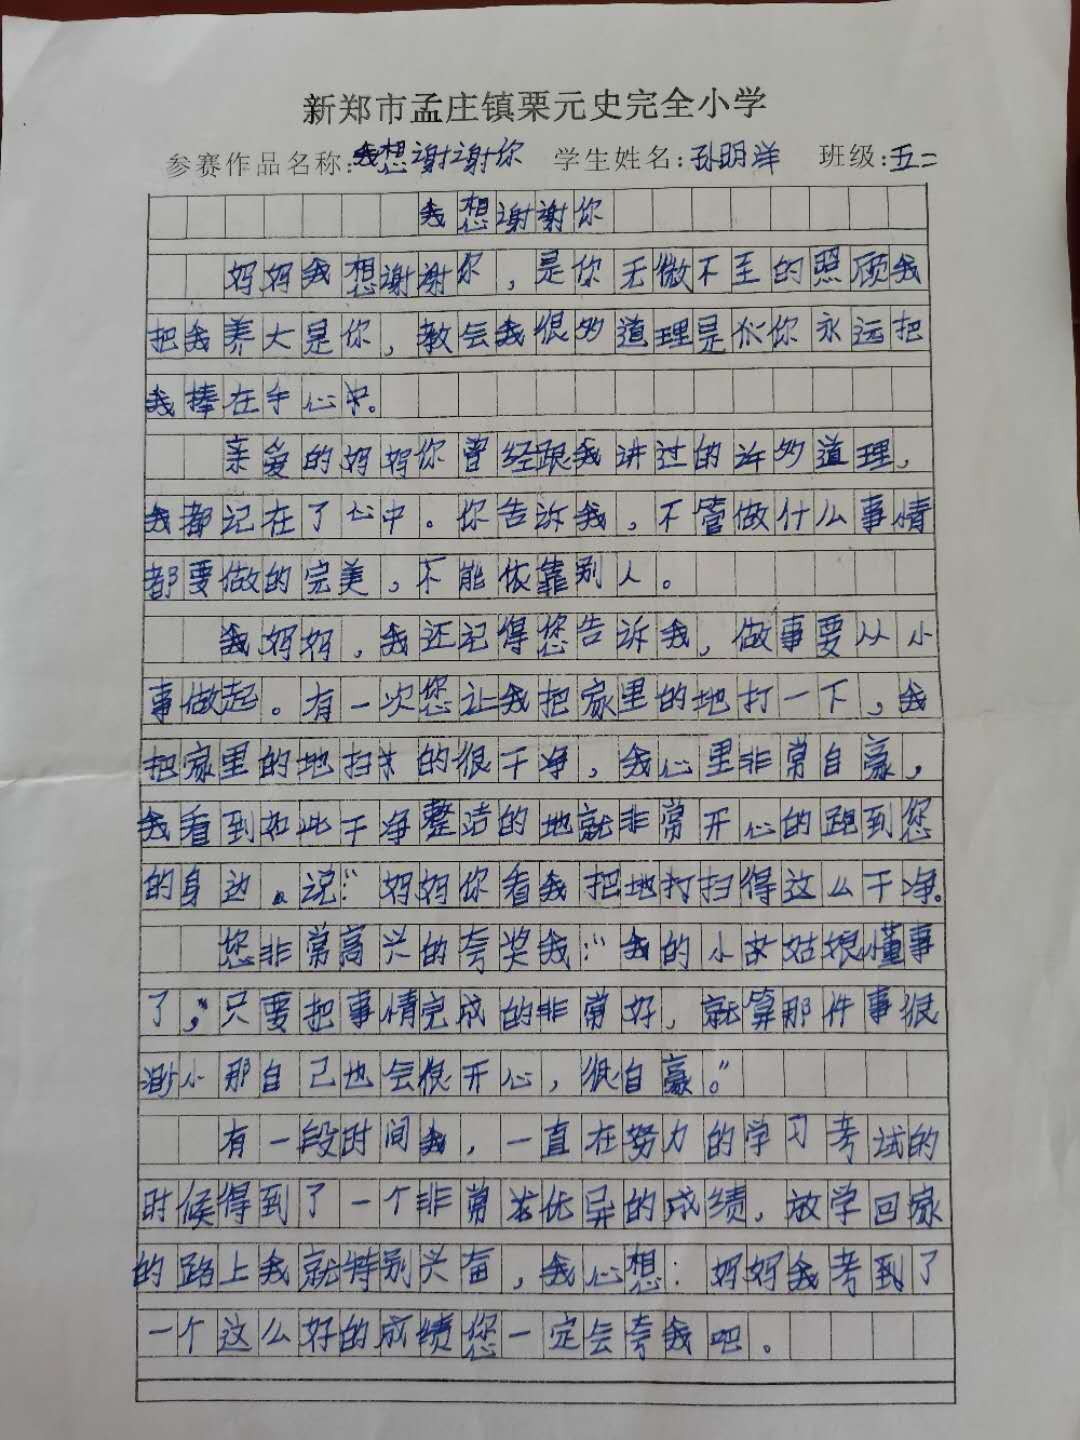 新郑市孟庄镇栗元史完全小学
参赛作品名称:我想谢谢你 学生姓名:孙明洋 班级:五二
我想谢谢你
妈妈我想谢谢你，是你无微不至的照顾我
把我养大是你，教会我很多道理是你你永远把
我捧在手心中。
亲爱的妈妈你曾经跟我讲过的许多道理，
我都记在了心中。你告诉我，不管做什么事情
都要做的完美，不能依靠别人。
我妈妈，我还记得您告诉我，做事要从小
事做起。有一次您让我把家里的地打一下，我
把家里的地扫的很干净，我心里非常自豪，
我看到如此干净整洁的地就非常开心的跑到您
的身边。说:“妈妈你看我把地打扫得这么干净。
您非常高兴的夸奖我:“我的小姑娘懂事
了，”只要把事情完成的非常好，就算那件事很
渺小那自己也会很开心，很自豪。”
有一段时间我，一直在努力的学习考试的
时候得到了一个非常优异的成绩，放学回家
的路上我就特别兴奋，我心想:妈妈我考到了
一个这么好的成绩您一定会夸我吧。